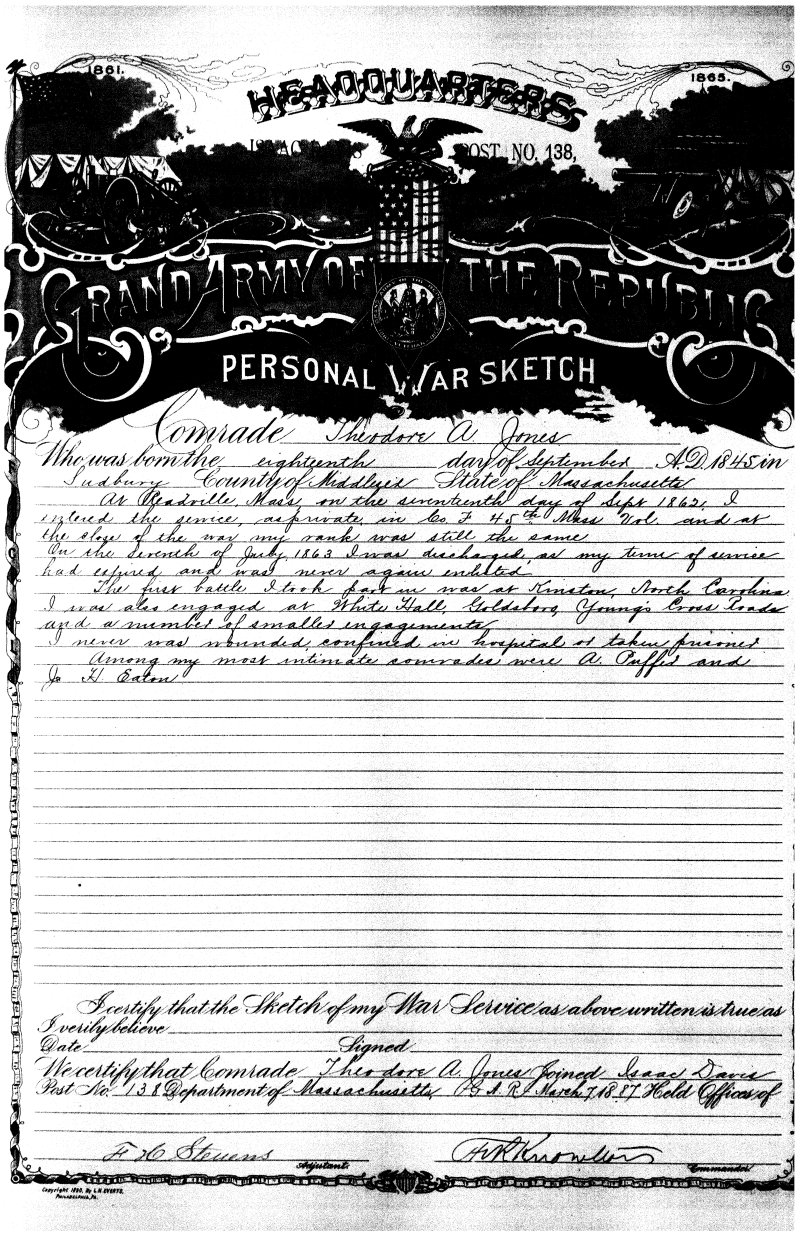 1861.
1865.
HEADQUARTERS
POST NO. 138,
GRAND ARMY OF THE REPUBLIC
PERSONAL WAR SKETCH
Comrade Theodore A. Jones
Who was born the eighteenth day of September A.D. 1845 in
Sudbury County of Middlesex State of Massachusetts
At Readville, Mass, on the seventeenth day of Sept 1862, I
entered the service, as private, in Co. F 45th Mass Vol. and at
the close of the war my rank was still the same
On the seventh of July, 1863 I was discharged, as my term of service
had expired and was never again enlisted.
The first battle I took part in was at Kinston, North Carolina
I was also engaged at White Hall, Goldsboro, Young's Cross Roads
and a number of smaller engagements
I never was wounded, confined in hospital or taken prisoner
Among my most intimate comrades were A. Puffer and
J. H. Eaton
I certify that the Sketch of my War Service as above written is true as
I verily believe
Date Signed
We certify that Comrade Theodore A. Jones Joined Isaac Davis
Post No. 138 Department of Massachusetts G.A.R. March 7 1887 Held Offices of
F H Stevens
Knowlton
Adjutant.
Commander
Copyright 1890, By L.H. EVERTS,
PHILADELPHIA, PA.